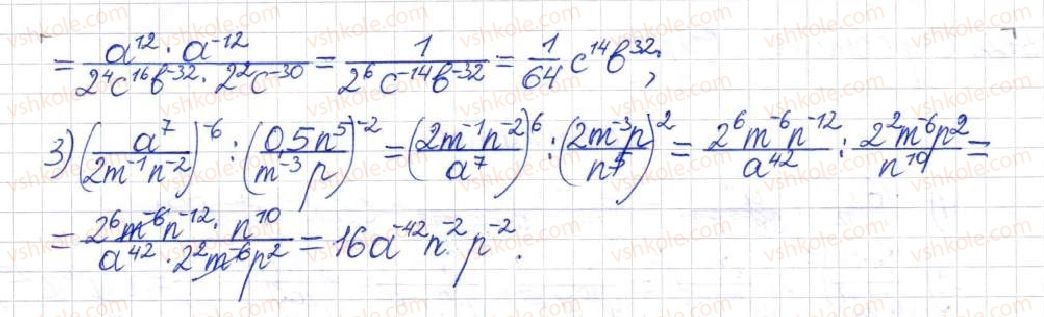 = a¹² · a⁻¹² / 2⁴c¹⁶b⁻³² · 2²c⁻³⁰ = 1 / 2⁶c⁻¹⁴b⁻³² = 1/64 c¹⁴b³²;
3) (a⁷ / 2m⁻¹n⁻²)⁻⁶ : (0,5n⁵ / m⁻³p)⁻² = (2m⁻¹n⁻² / a⁷)⁶ : (2m⁻³p / n⁵)² = 2⁶m⁻⁶n⁻¹² / a⁴² : 2²m⁻⁶p² / n¹⁰ =
= 2⁶m⁻⁶n⁻¹² · n¹⁰ / a⁴² · 2²m⁻⁶p² = 16a⁻⁴²n⁻²p⁻².